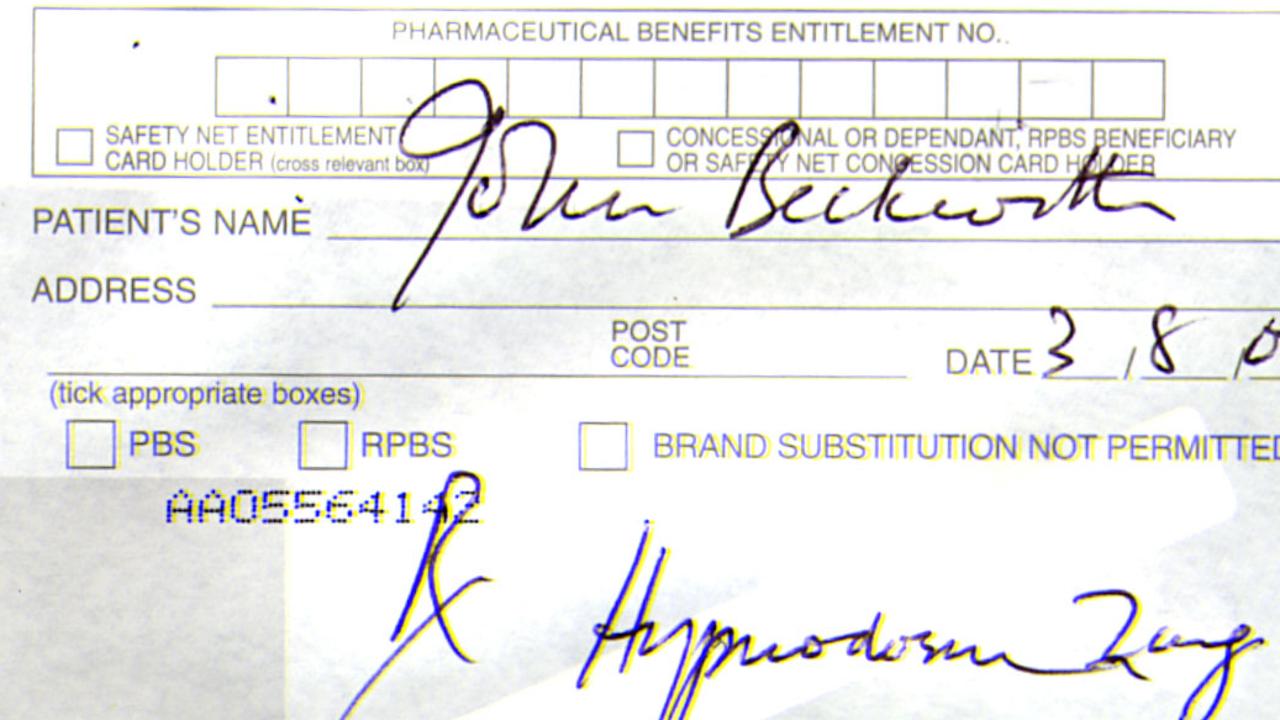 PHARMACEUTICAL BENEFITS ENTITLEMENT NO.
SAFETY NET ENTITLEMENT
CARD HOLDER (cross relevant box)
CONCESSIONAL OR DEPENDANT, RPBS BENEFICIARY
OR SAFETY NET CONCESSION CARD HOLDER
PATIENT'S NAME John Beckworth
ADDRESS
POST
CODE
DATE 3 / 8 / 0
(tick appropriate boxes)
PBS RPBS BRAND SUBSTITUTION NOT PERMITTED
AA05564142
Rx Hypnodorm 2mg